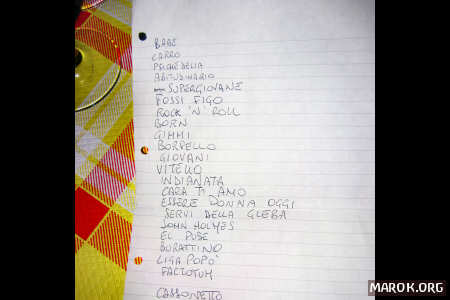 BABE
CARRO
PSICHEDELIA
ABITUDINARIO
SUPERGIOVANE
FOSSI FIGO
ROCK 'N' ROLL
BORN
GIMMI
BORRELLO
GIOVANI
VITELLO
INDIANATA
CARA TI AMO
ESSERE DONNA OGGI
SERVI DELLA GLEBA
JOHN HOLMES
EL PUBE
BURATTINO
LIGA POPO'
FACTOTUM
CASSONETTO
MAROK.ORG